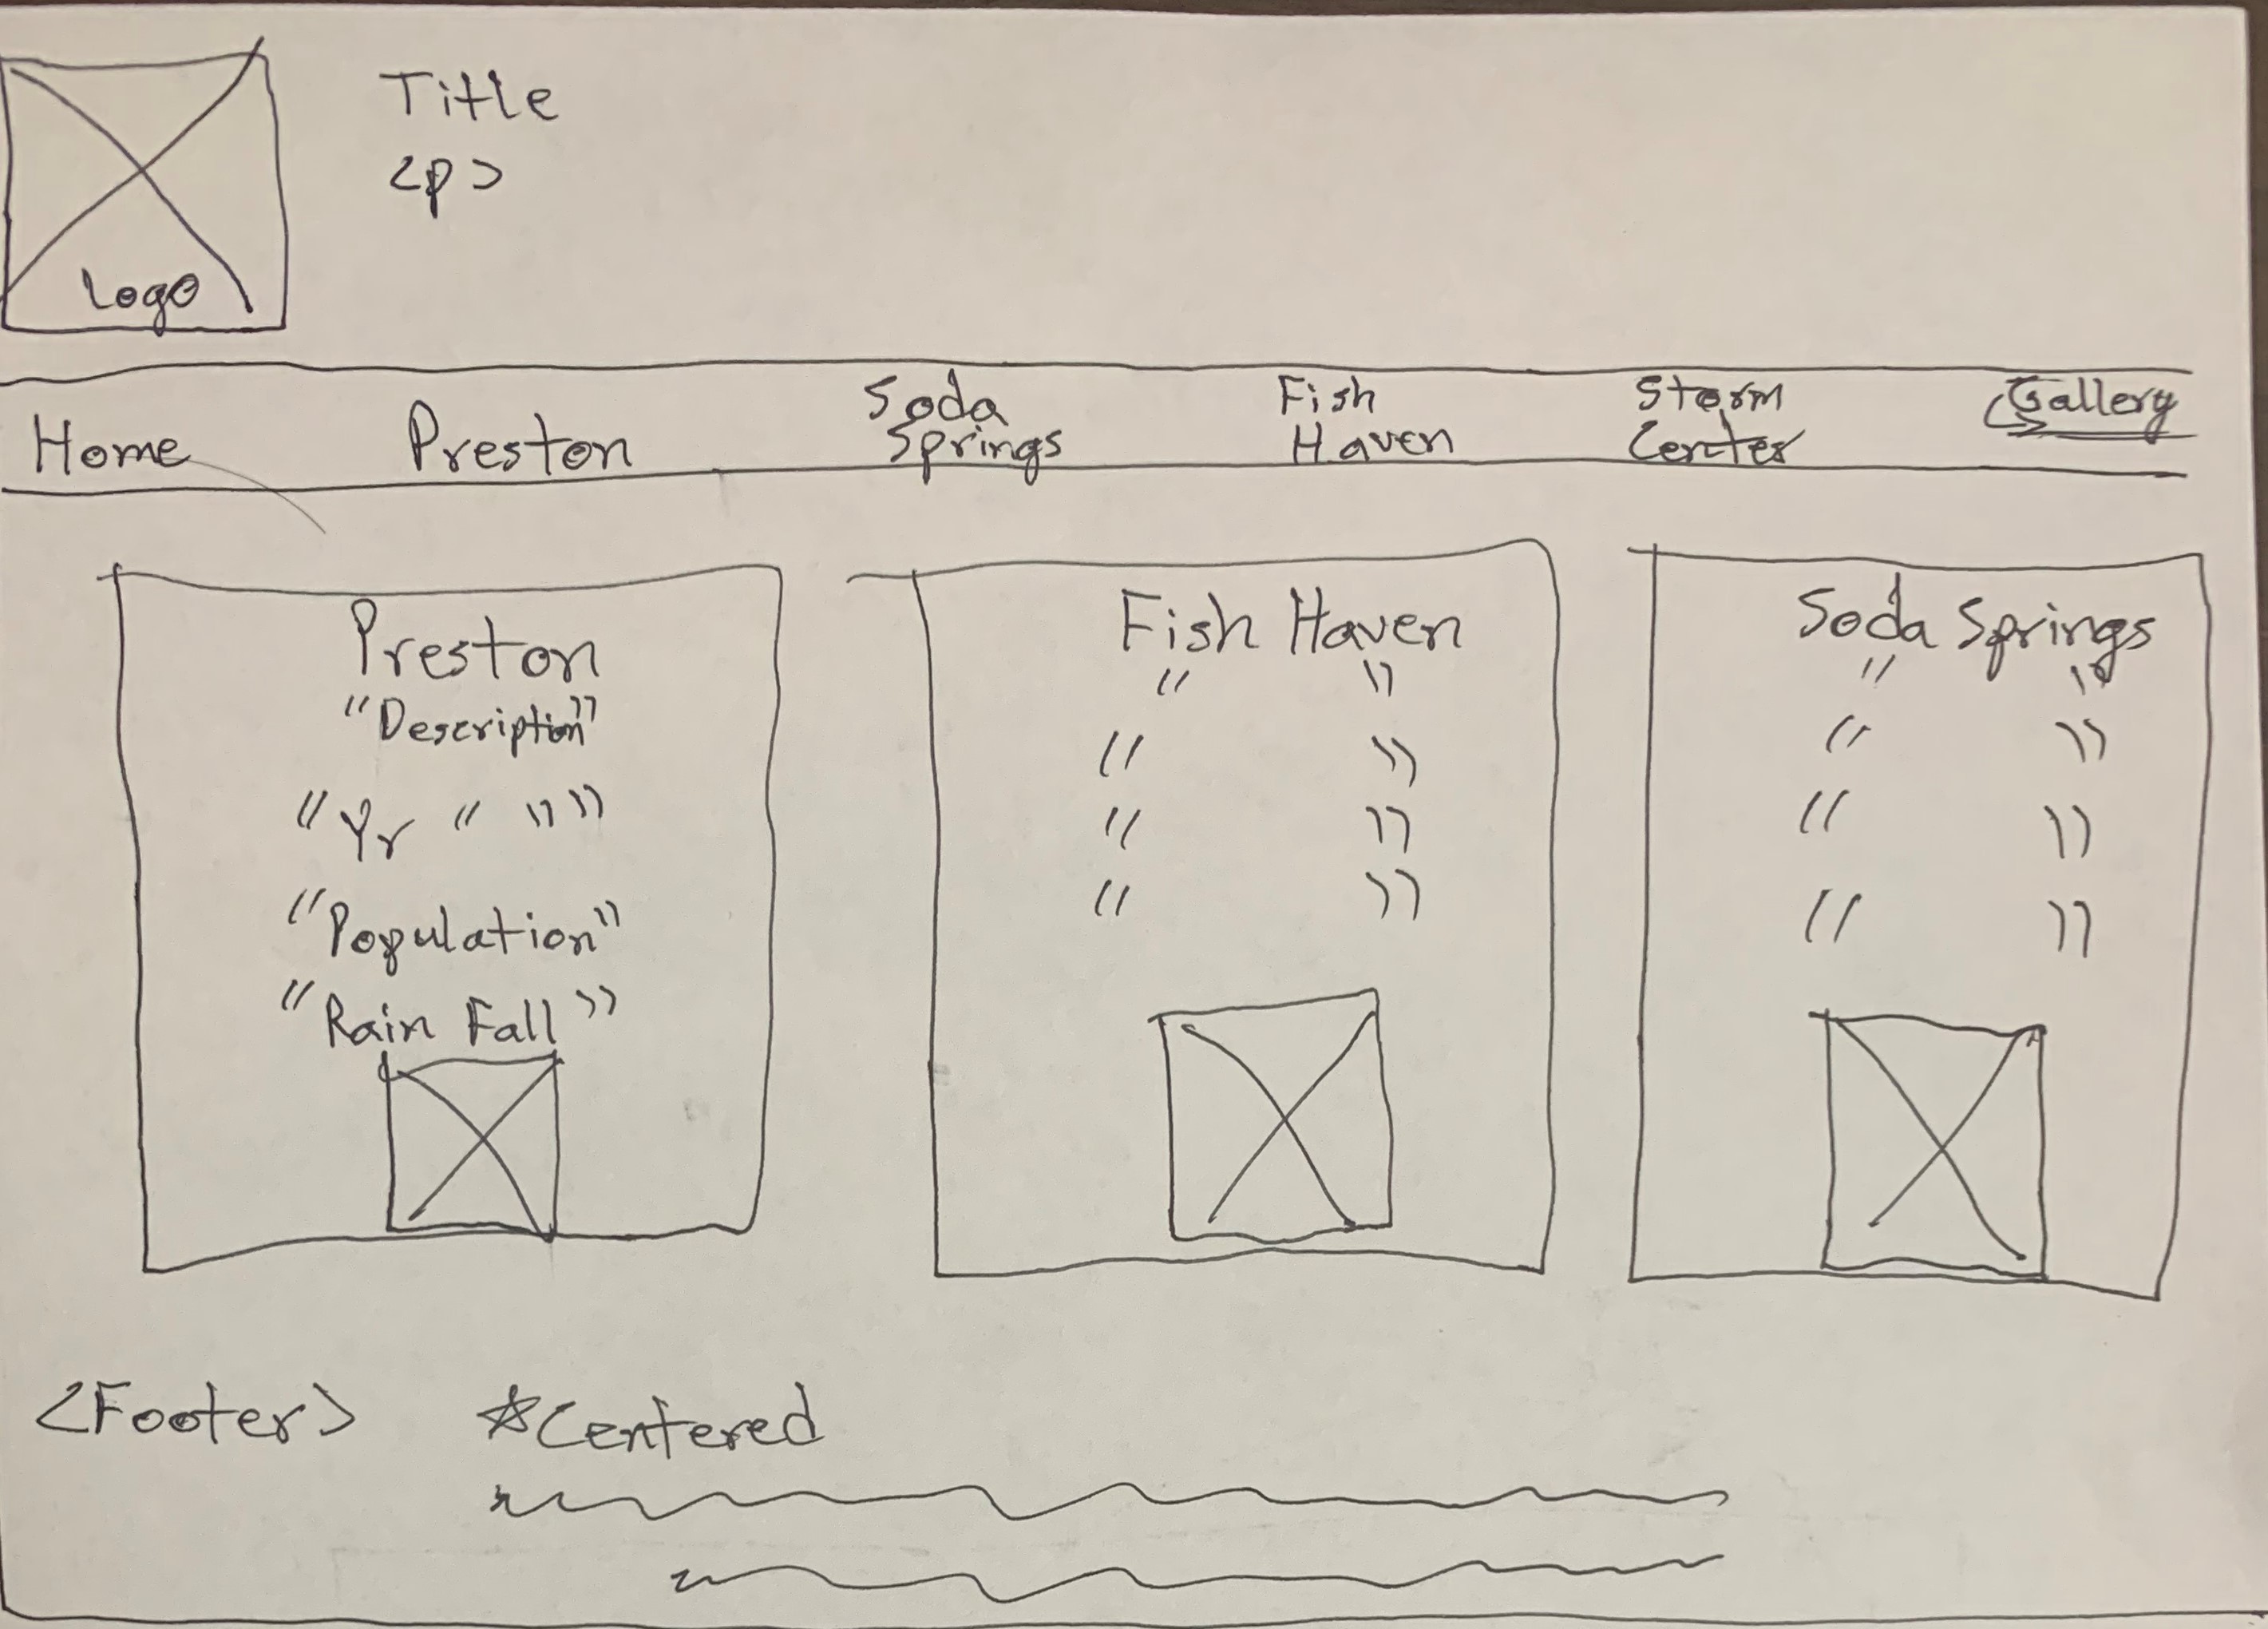 Title
<p>
Logo
Home Preston Soda Springs Fish Haven Storm Center Gallery
Preston
"Description"
"Yr " " "
"Population"
"Rain Fall"
Fish Haven
" "
" "
" "
" "
Soda Springs
" "
" "
" "
" "
<Footer> *Centered